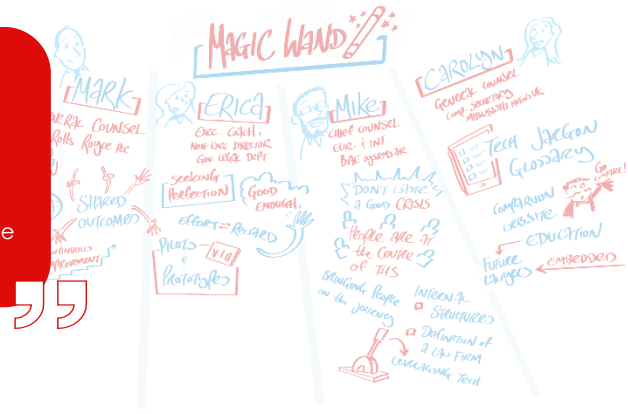 MAGIC WAND
MARK
GENERAL COUNSEL
Rolls Royce PLC
SHARED
OUTCOMES
CONTINUOUS
IMPROVEMENT
e
ERICA
EXEC. COACH,
NON-EXEC DIRECTOR
GOV LEGAL DEPT
SEEKING
PERFECTION
GOOD
ENOUGH
EFFORT
REWARD
PILOTS
&
PROTOTYPES
MIKE
CHIEF COUNSEL
EUR. & INT.
BAE SYSTEMS
DON'T WASTE
a GOOD CRISIS
PEOPLE ARE AT
the CENTRE
OF THIS
BRINGING PEOPLE
on the JOURNEY
INTERNAL
STRUCTURES
DEFINITION OF
A LAW FIRM
LEVERAGING TECH
CAROLYN
GENERAL COUNSEL
COMP. SECRETARY
TECH JARGON
GLOSSARY
GO
COMPARE!
COMPARISON
WEBSITE
EDUCATION
FUTURE
LAWYERS
EMBEDDED